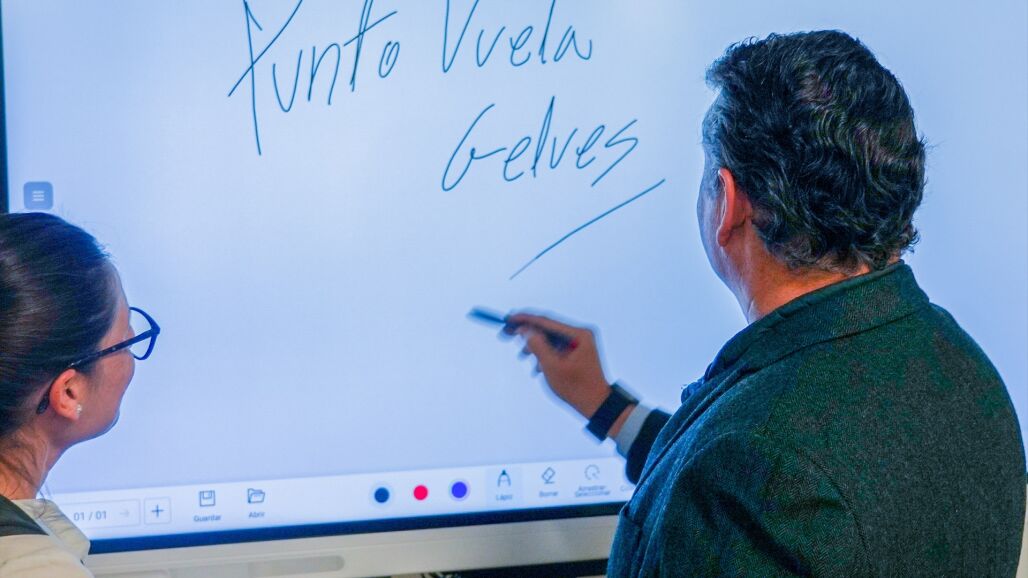 Punto Vuela
Gelves
01 / 01
Guardar
Abrir
Lápiz
Borrar
Seleccionar